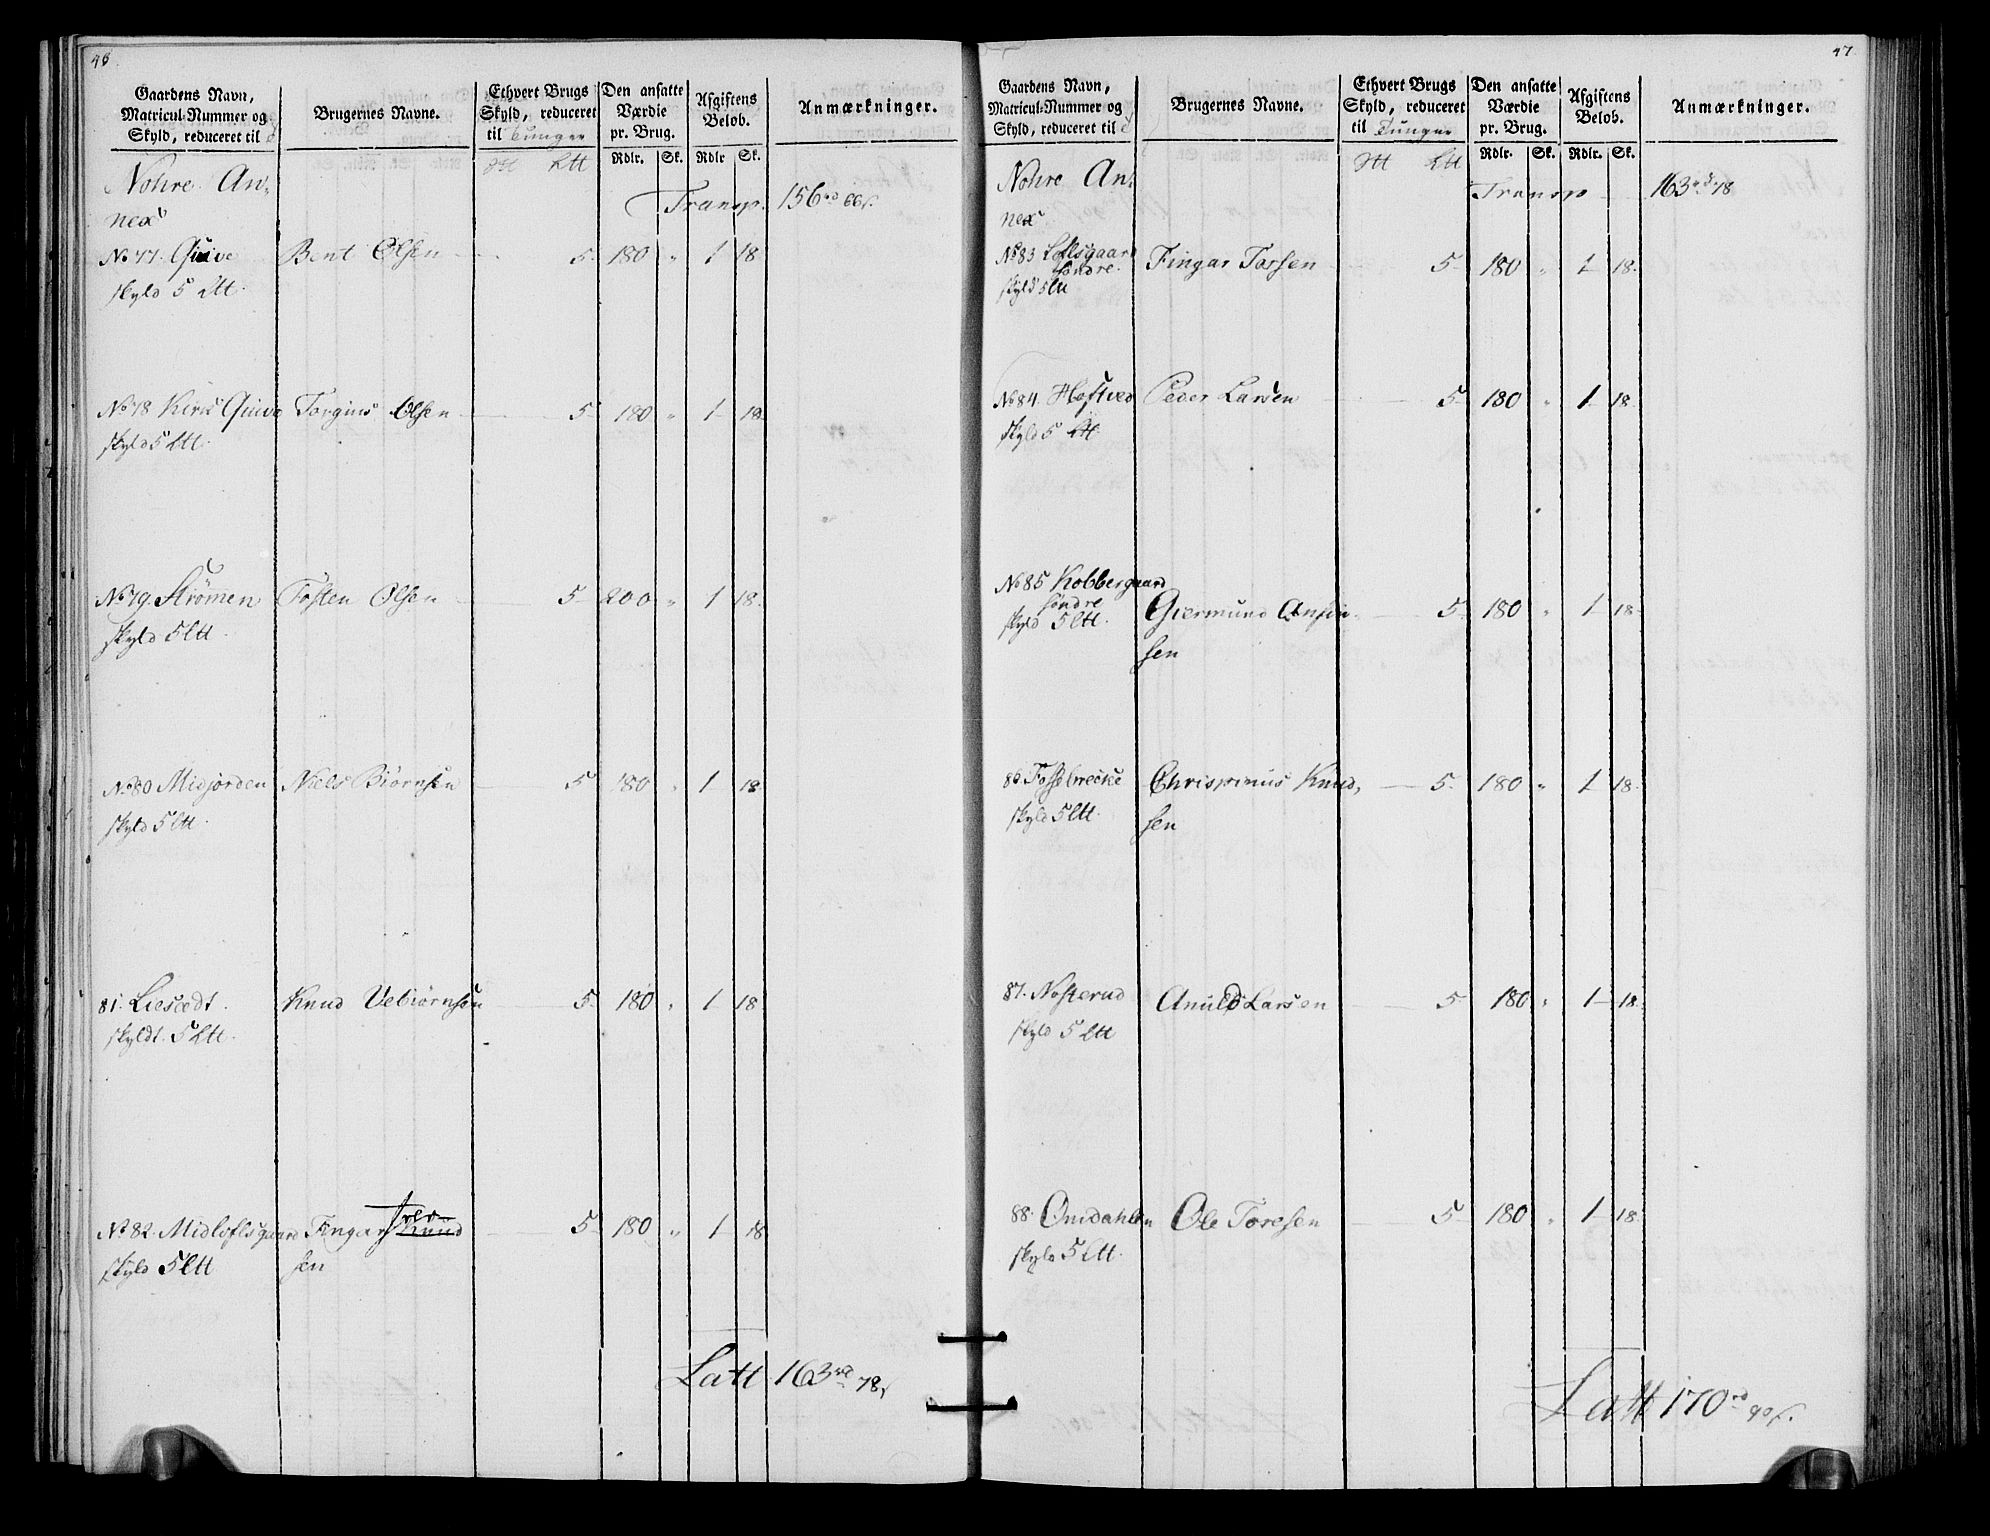 46.
Gaardens Navn, Matricul-Nummer og Skyld, reduceret til
Brugernes Navne.
Ethvert Brugs Skyld, reduceret til Tunger
Den ansatte Værdie pr. Brug.
Afgiftens Beløb.
Anmærkninger.
Rdlr. Sk. Rdlr Sk.
Nohre An-
nex
Transp. 156 rd 66 s.
No 77. Quive Bent Olsen 5 180 " 1 18
skyld 5 Ltt.
No 78 Kiris Quive Torgius Olsen 5 180 " 1 18
skyld 5 Ltt.
No 79. Strömen Tosten Olsen 5 200 " 1 18.
skyld 5 Ltt.
No 80 Midjorden Niels Biörnsen 5 180 " 1 18
skyld 5 Ltt.
81. Liesædt. Knud Vebiörnsen 5 180 " 1 18
skyldt. 5 Ltt.
No 82. Midloflsgaard Fingar Knud 5 180 " 1 18
skyld 5 Ltt sen
Latt 163 rd 78 s
47
Gaardens Navn, Matricul-Nummer og Skyld, reduceret til
Brugernes Navne.
Ethvert Brugs Skyld, reduceret til Tunger
Den ansatte Værdie pr. Brug.
Afgiftens Beløb.
Anmærkninger.
Rdlr. Sk. Rdlr. Sk.
Nohre An-
nex
Transp 163 rd 78
No 83 Loflsgaard Fingar Torsen 5 180 " 1 18.
söndre.
skyld 5 Ltt
No 84. Hoftved Peder Larsen 5 180 " 1 18.
skyld 5 Ltt.
No 85 Kobbergaard
söndre Giermund Ansten 5 180 " 1 18
skyld 5 Ltt. sen
86 Fossebrecke Chrispinus Knud, 5 180 " 1 18.
skyld 5 Ltt. sen
87. Nosterud Anuld Larsen 5 180 " 1 18.
skyld 5 Ltt
88. Omdahlen Ole Toresen 5 180 " 1 18
skyld 5 Ltt.
Latt 170 rd 90 s.